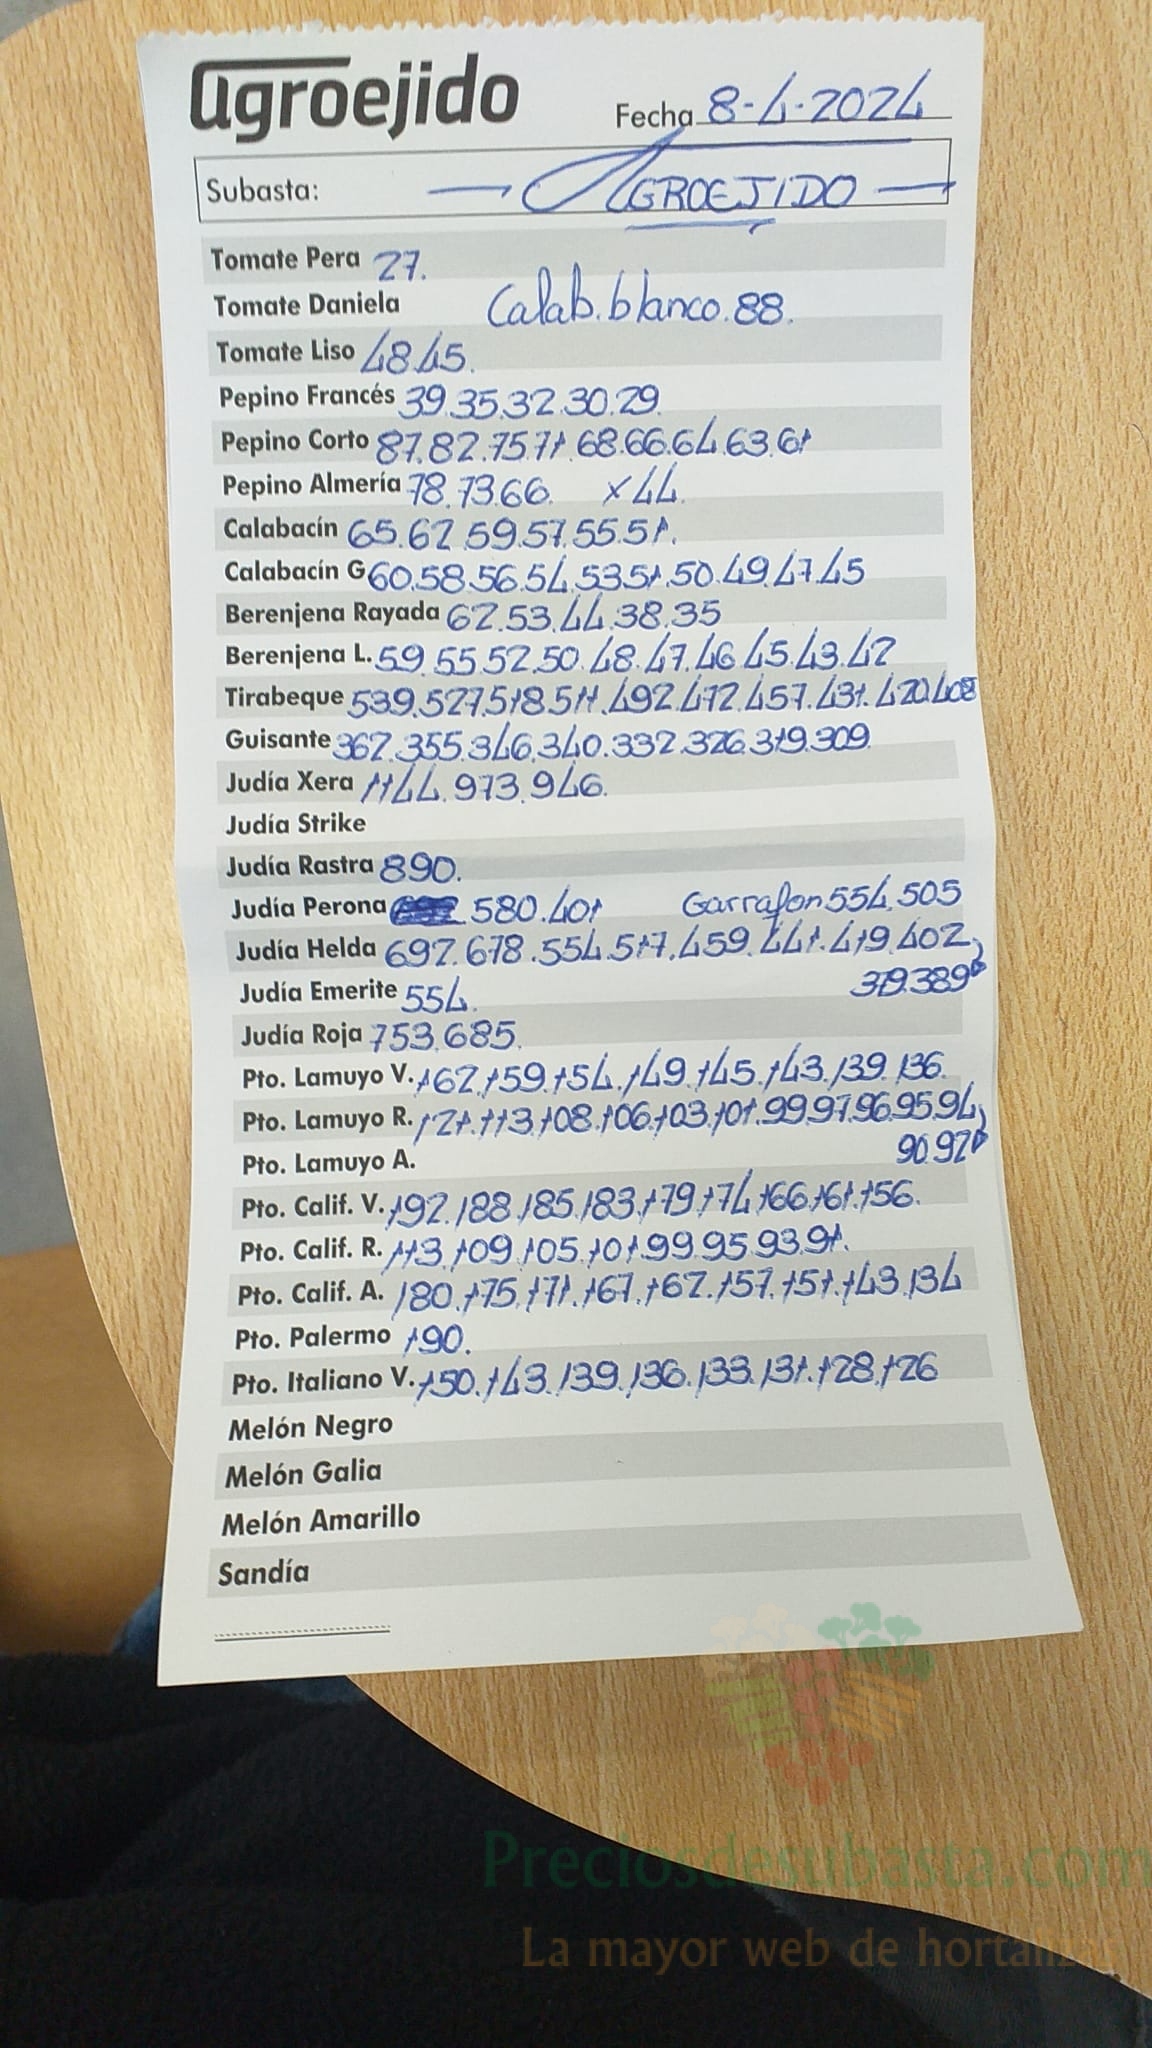 agroejido
Fecha 8-4-2024
Subasta: AGROEJIDO
Tomate Pera 27.
Tomate Daniela Calab. blanco. 88.
Tomate Liso 48.45.
Pepino Francés 39.35.32.30.29.
Pepino Corto 87.82.75.71.68.66.64.63.61
Pepino Almería 78.73.66. x44.
Calabacín 65.62.59.57.55.51.
Calabacín G 60.58.56.54.53.51.50.49.47.45
Berenjena Rayada 62.53.44.38.35
Berenjena L. 59.55.52.50.48.47.46.45.43.42
Tirabeque 539.527.518.511.492.472.457.431.420.408
Guisante 362.355.346.340.332.326.319.309.
Judía Xera 1144.973.946.
Judía Strike
Judía Rastra 890.
Judía Perona .580.401 Garrafon 554.505
Judía Helda 692.678.554.517.459.441.419.402,
Judía Emerite 554. 389
Judía Roja 753.685.
Pto. Lamuyo V. 162.159.154.149.145.143.139.136.
Pto. Lamuyo R. 121.113.108.106.103.101.99.97.96.95.94,
Pto. Lamuyo A. 90.92
Pto. Calif. V. 192.188.185.183.179.174.166.161.156.
Pto. Calif. R. 113.109.105.101.99.95.93.91.
Pto. Calif. A. 180.175.171.167.162.157.151.143.134
Pto. Palermo 190.
Pto. Italiano V. 150.143.139.136.133.131.128.126
Melón Negro
Melón Galia
Melón Amarillo
Sandía
Preciosdesubasta.com
La mayor web de hortalizas